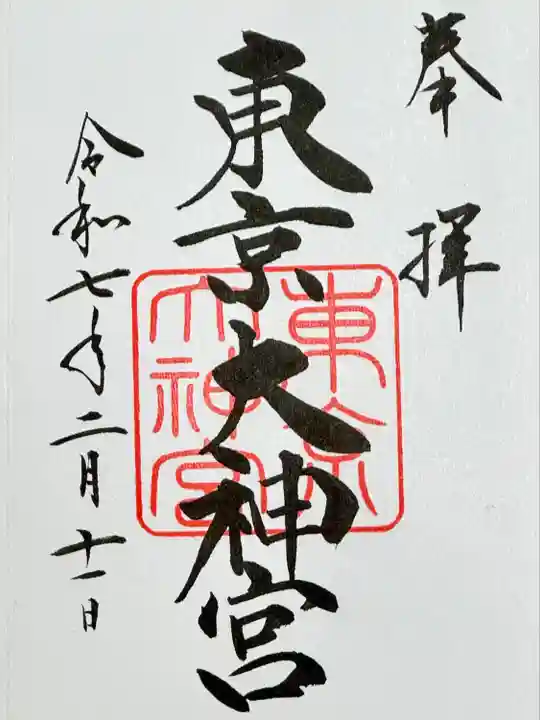 奉拝
東京大神宮
東京
大神宮
令和七年二月十一日